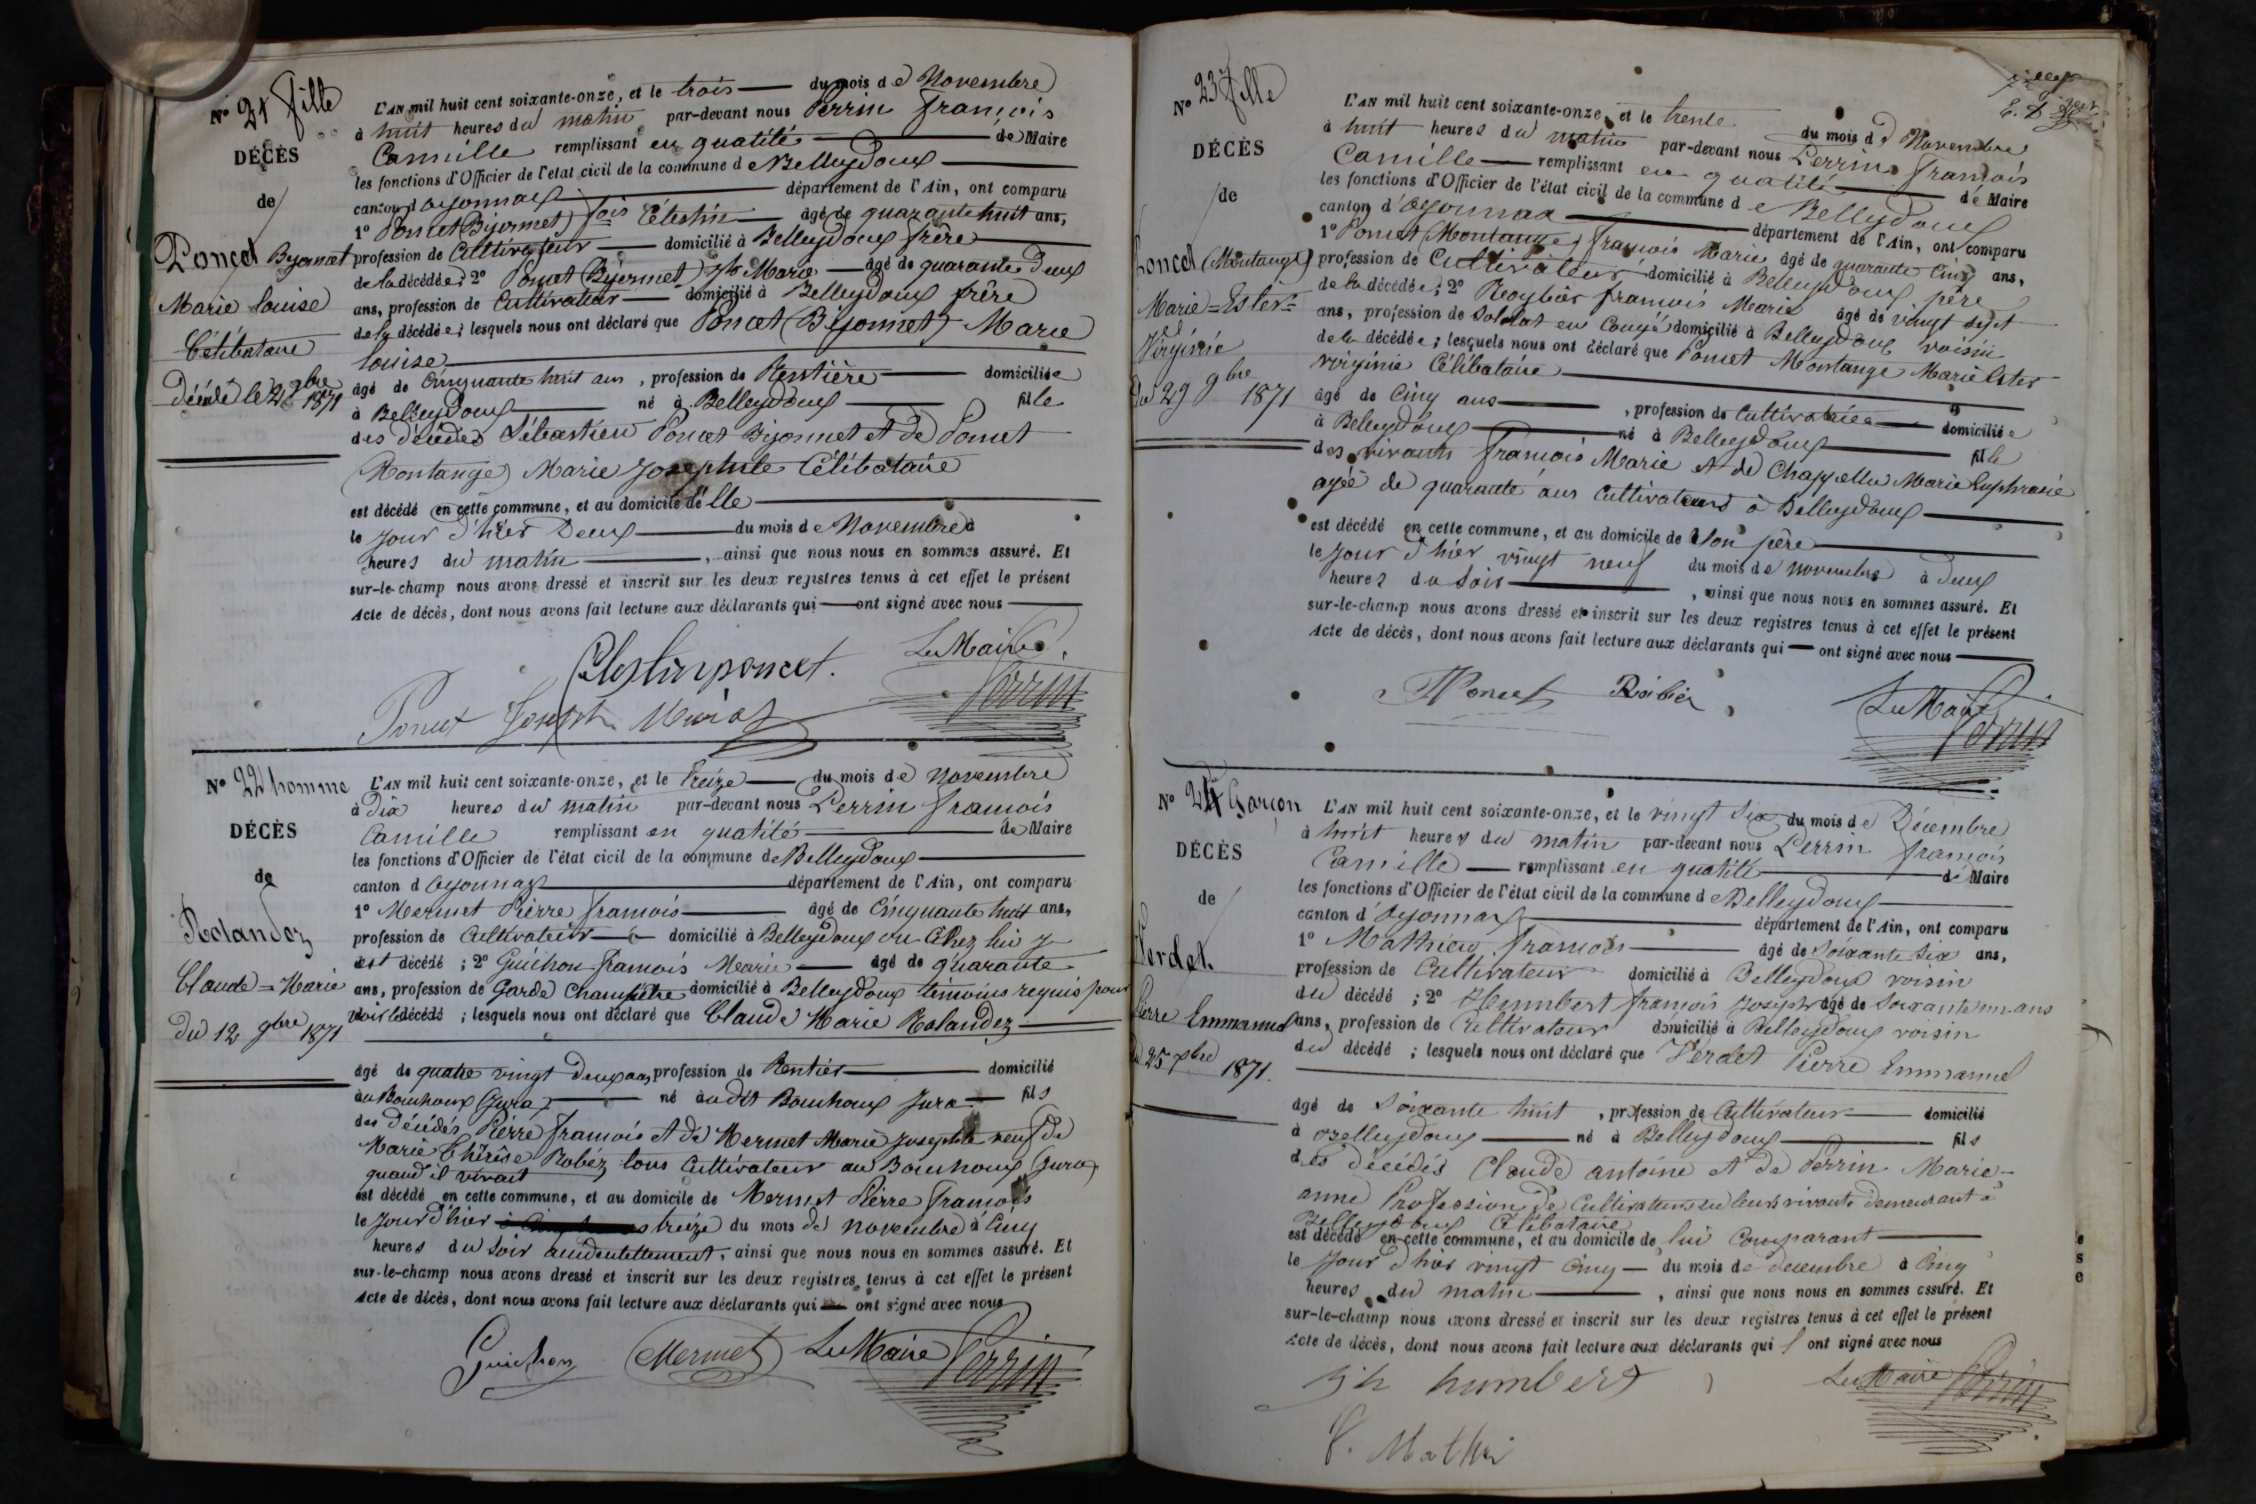 N° 21 fille
DÉCÈS
de
Poncet Byonnet
Marie louise
Célibataire
Décédé le 2 9bre 1871
L'AN mil huit cent soixante-onze, et le trois du mois de Novembre
à huit heures du matin par-devant nous Perrin françois
Camille remplissant en qualité de Maire
les fonctions d'Officier de l'état civil de la commune de Belleydoux
canton d'oyonnax département de l'Ain, ont comparu
1° Poncet (Bijonnet) fois Célestin âgé de quarante huit ans,
profession de Cultivateur domicilié à Belleydoux frère
de la décédée; 2° Poncet (Bijonnet) Jh Marie âgé de quarante deux
ans, profession de Cultivateur domicilié à Belleydoux frère
de la décédée; lesquels nous ont déclaré que Poncet (Bijonnet) Marie
louise
âgé de Cinquante huit ans, profession de Rentière domiciliée
à Belleydoux né à Belleydoux fille
des décédés Sébastien Poncet Bijonnet et de Poncet
(Montange) Marie Josephte Célibataire
est décédé en cette commune, et au domicile d'elle
le Jour d'hier Deux du mois de Novembre à
heures du matin, ainsi que nous nous en sommes assuré. Et
sur-le-champ nous avons dressé et inscrit sur les deux registres tenus à cet effet le présent
Acte de décès, dont nous avons fait lecture aux déclarants qui ont signé avec nous
Celestin poncet. Le Maire
Poncet Joseph Marie Perrin
N° 22 homme
DÉCÈS
de
Rolandez
Claude=Marie
du 12 9bre 1871
L'AN mil huit cent soixante-onze, et le treize du mois de Novembre
à dix heures du matin par-devant nous Perrin françois
Camille remplissant en qualité de Maire
les fonctions d'Officier de l'état civil de la commune de Belleydoux
canton d'oyonnax département de l'Ain, ont comparu
1° Mermet Pierre françois âgé de Cinquante huit ans,
profession de Cultivateur domicilié à Belleydoux ou Chez lui y
est décédé; 2° Guichon françois Marie âgé de quarante
ans, profession de Garde Champêtre domicilié à Belleydoux témoins requis pour
voir le décédé; lesquels nous ont déclaré que Claude Marie Rolandez
âgé de quatre vingt deux ans, profession de Rentier domicilié
au Bouchoux (Jura) né audit Bouchoux Jura fils
des Décédés Pierre françois et de Mermet Marie Josephte veuf de
Marie Thérèse Robez tous Cultivateur au Bouchoux (Jura)
quand il vivait
est décédé en cette commune, et au domicile de Mermet Pierre françois
le Jour d'hier treize du mois de novembre à Cinq
heures du soir accidentellement, ainsi que nous nous en sommes assuré. Et
sur-le-champ nous avons dressé et inscrit sur les deux registres tenus à cet effet le présent
Acte de décès, dont nous avons fait lecture aux déclarants qui ont signé avec nous
Guichon Mermet Le Maire Perrin
N° 23 fille
DÉCÈS
de
Poncet (Montange)
Marie=Ester=
Virginie
du 29 9bre 1871
L'AN mil huit cent soixante-onze, et le trente du mois de Novembre
à huit heures du matin par-devant nous Perrin françois
Camille remplissant en qualité de Maire
les fonctions d'Officier de l'état civil de la commune de Belleydoux
canton d'oyonnax département de l'Ain, ont comparu
1° Poncet (Montange) françois Marie âgé de quarante Cinq ans,
profession de Cultivateur domicilié à Belleydoux père
de la décédée; 2° Roybier françois Marie âgé de vingt sept
ans, profession de Soldat en Congé domicilié à Belleydoux voisin
de la décédée; lesquels nous ont déclaré que Poncet Montange Marie Ester
virginie Célibataire
âgé de Cinq ans, profession de Cultivatrice domiciliée
à Belleydoux né à Belleydoux fille
des vivants françois Marie et de Chappellu Marie Euphrasie
agée de quarante ans Cultivateurs à Belleydoux
est décédé en cette commune, et au domicile de son père
le Jour d'hier vingt neuf du mois de novembre à deux
heures du soir, ainsi que nous nous en sommes assuré. Et
sur-le-champ nous avons dressé et inscrit sur les deux registres tenus à cet effet le présent
Acte de décès, dont nous avons fait lecture aux déclarants qui ont signé avec nous
Poncet Robier Le Maire
Perrin
N° 24 Garçon
DÉCÈS
de
Verdet
Pierre Emmanuel
du 25 xbre 1871.
L'AN mil huit cent soixante-onze, et le vingt six du mois de Décembre
à huit heures du matin par-devant nous Perrin françois
Camille remplissant en qualité de Maire
les fonctions d'Officier de l'état civil de la commune de Belleydoux
canton d'Oyonnax département de l'Ain, ont comparu
1° Mathieu françois âgé de Soixante Six ans,
profession de Cultivateur domicilié à Belleydoux voisin
du décédé; 2° Humbert françois Joseph âgé de Soixante un ans
ans, profession de Cultivateur domicilié à Belleydoux voisin
du décédé; lesquels nous ont déclaré que Verdet Pierre Emmanuel
âgé de Soixante huit, profession de Cultivateur domicilié
à Belleydoux né à Belleydoux fils
des décédés Claude antoine et de Perrin Marie-
anne Profession de Cultivateurs de leurs vivants demeurant à
Belleydoux Célibataire
est décédé en cette commune, et au domicile de lui Comparant
le Jour d'hier vingt Cinq du mois de decembre à Cinq
heures du matin, ainsi que nous nous en sommes assuré. Et
sur-le-champ nous avons dressé et inscrit sur les deux registres tenus à cet effet le présent
Acte de décès, dont nous avons fait lecture aux déclarants qui ont signé avec nous
humbert Le Maire Perrin